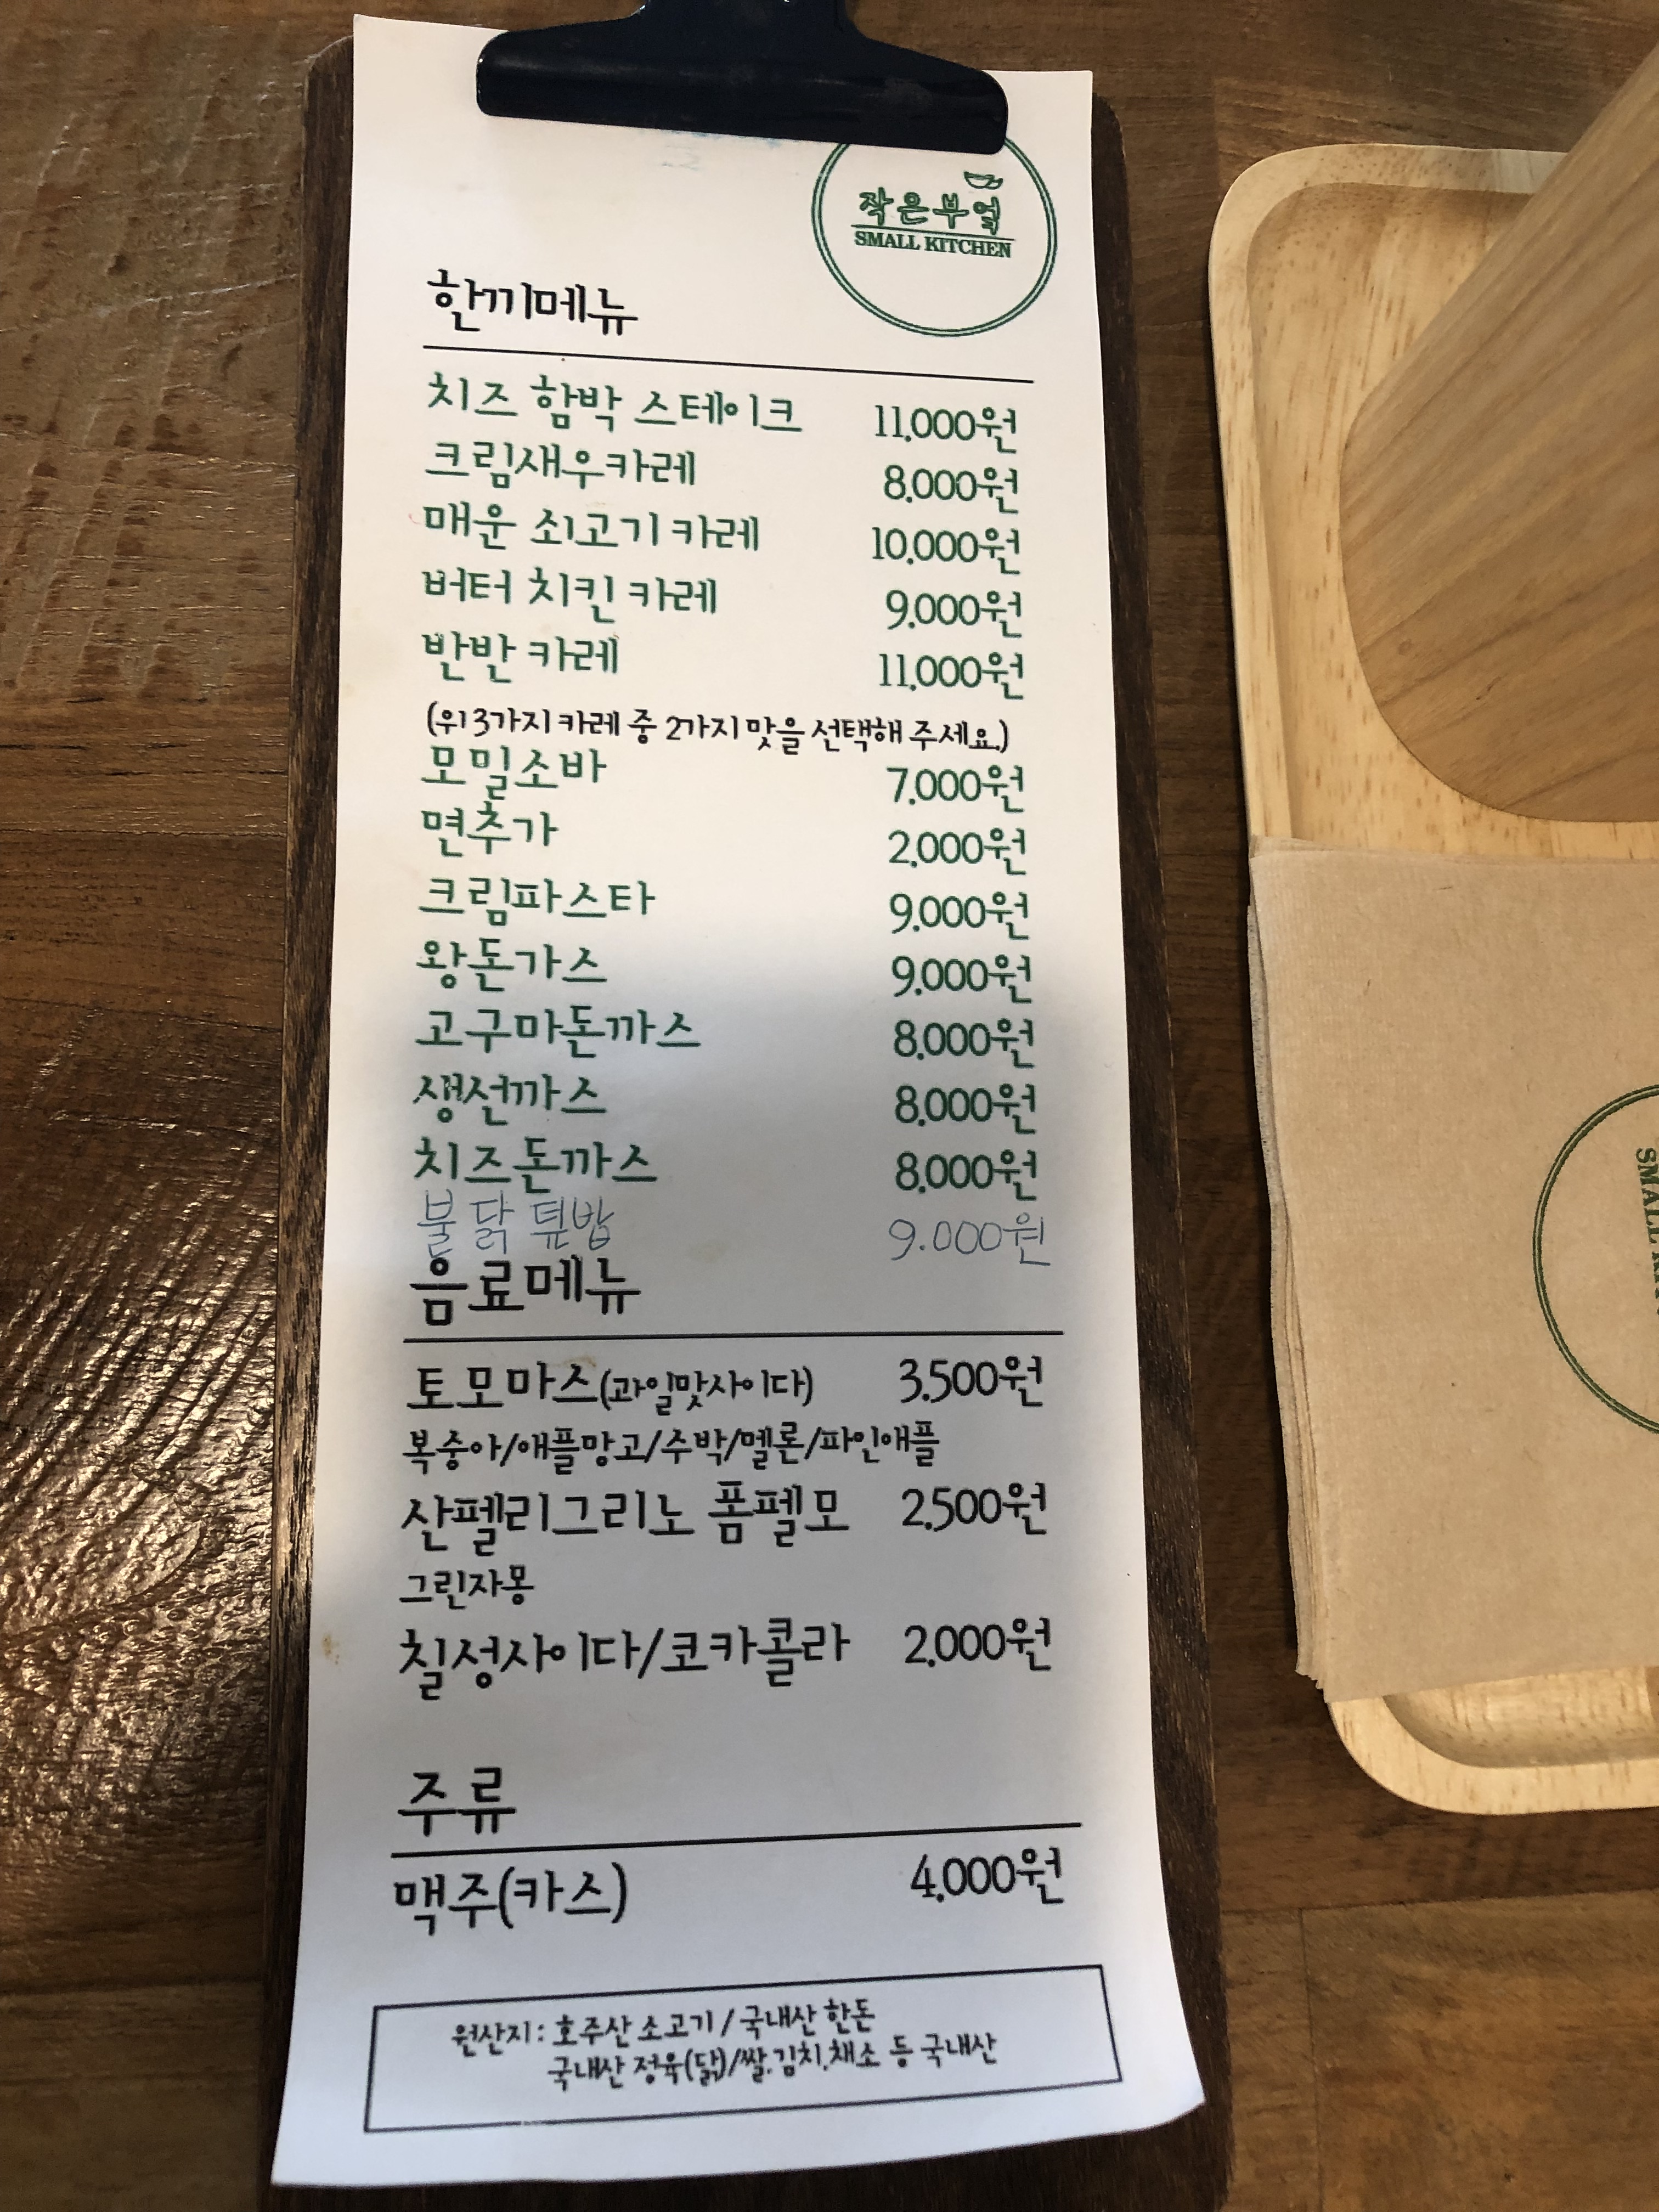 작은부엌
SMALL KITCHEN
한끼메뉴
치즈 함박 스테이크 11,000원
크림새우카레 8,000원
매운 쇠고기 카레 10,000원
버터 치킨 카레 9,000원
반반 카레 11,000원
(위 3가지 카레 중 2가지 맛을 선택해 주세요.)
모밀소바 7,000원
면추가 2,000원
크림파스타 9,000원
왕돈가스 9,000원
고구마돈까스 8,000원
생선까스 8,000원
치즈돈까스 8,000원
불닭 튚밥 9.000원
음료메뉴
토모마스(과일맛사이다) 3,500원
복숭아/애플망고/수박/멜론/파인애플
산펠리그리노 폼펠모 2,500원
그린자몽
칠성사이다/코카콜라 2,000원
주류
맥주(카스) 4,000원
원산지 : 호주산 소고기 / 국내산 한돈
국내산 정육(닭)/쌀,김치,채소 등 국내산
SMALL